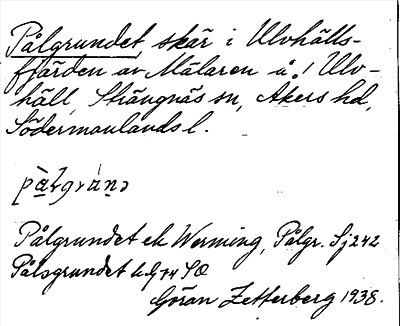 Pålgrundet, skär i Ulvhälls-
fjärden av Mälaren å! Ulv-
häll, Strängnäs sn, Åkers hd,
Södermanlands l.
Pålgrundet ek Werming, Pålgr. Sj 242
Pålsgrundet
Göran Zetterberg 1938.